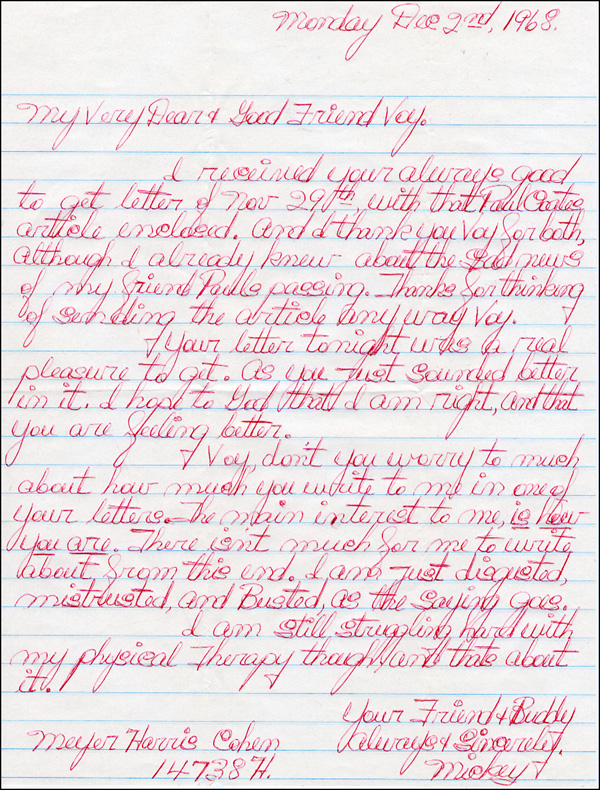 Monday Dec 2nd, 1968.
My Very Dear & Good Friend Voy.
I received your always good
to get letter of Nov 29th, with that Paul Coates
article enclosed. And I thank you Voy for both,
although I already knew about the sad news
of my friend Pauls passing. Thanks for thinking
of sending the article any way Voy.
Your letter tonight was a real
pleasure to get. As you Just sounded better
in it. I hope to God that I am right, and that
you are feeling better.
Voy, don't you worry to much
about how much you write to me in one of
your letters. The main interest to me, is how
you are. There isn't much for me to write
about from this end. I am Just disgusted,
mistrusted, and Busted, as the saying goes.
I am still struggling hard with
my physical Therapy though, and thats about
it.
Your Friend & Buddy
Always & Sincerely.
Mickey
Meyer Harris Cohen
147387H.